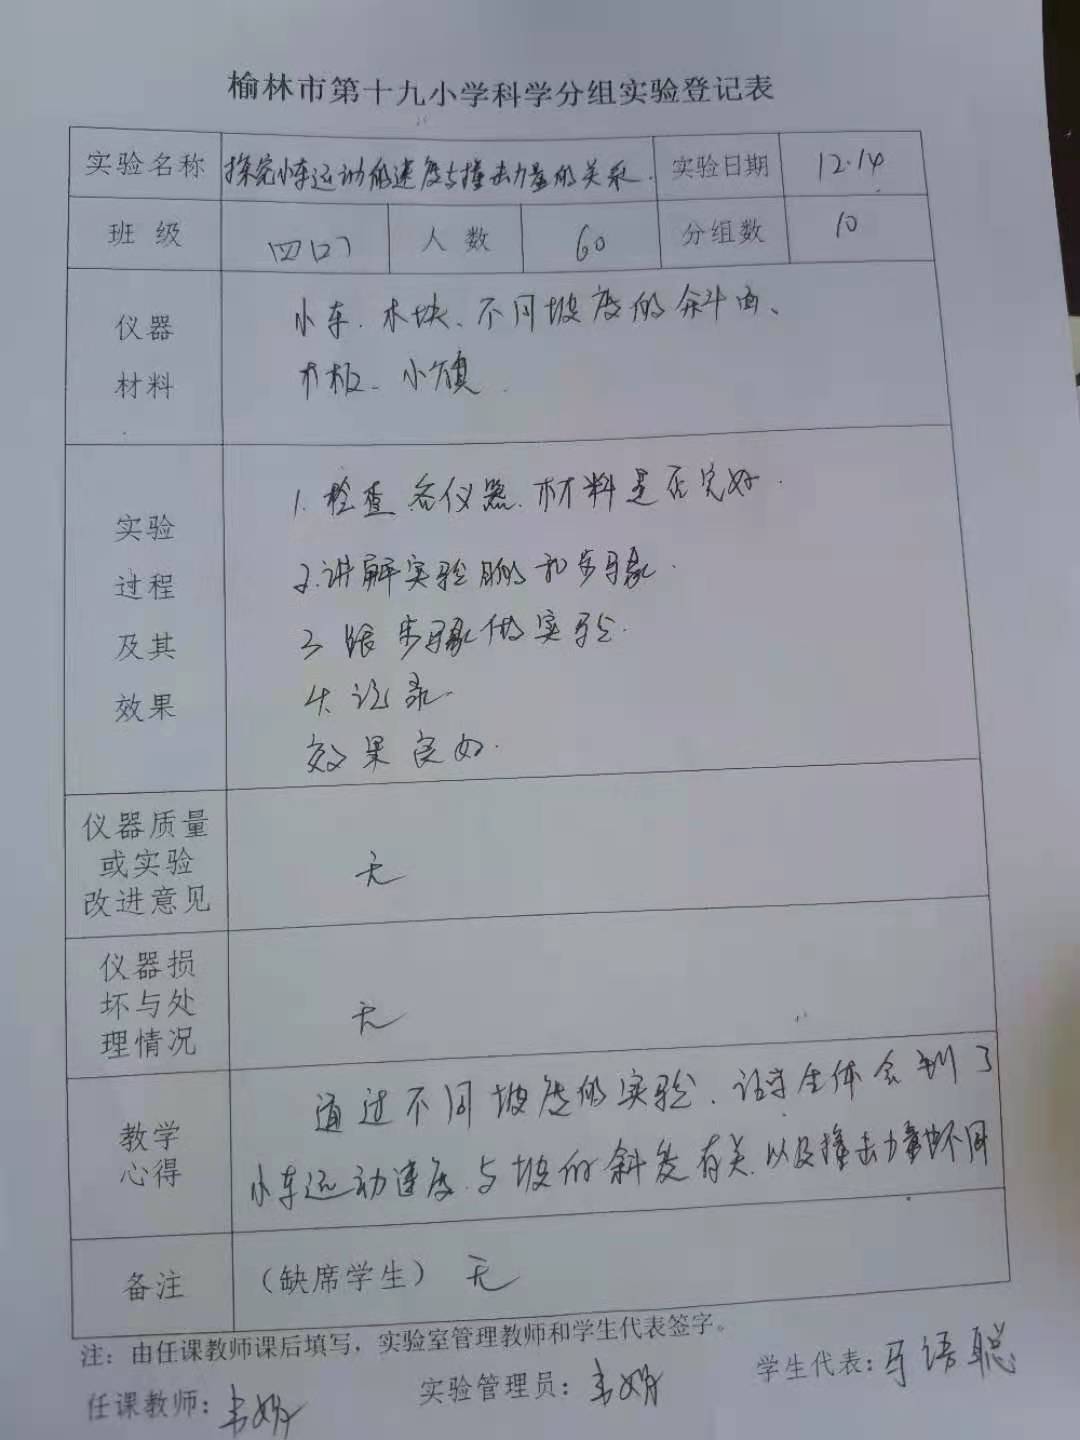 榆林市第十九小学科学分组实验登记表
实验名称 探究小车运动的速度与撞击力量的关系. 实验日期 12.14
班 级 四 人 数 60 分组数 10
仪器 小车.木块、不同坡度的斜面、
材料 木板、小旗.
1.检查各仪器.材料是否完好.
实验
2.讲解实验和步骤.
过程
及其 3 跟步骤做实验.
效果 4.记录.
效果良好.
仪器质量
或实验 无
改进意见
仪器损
坏与处 无
理情况
通过不同坡度的实验、让学生体会到了
教学
心得 小车运动速度.与坡的斜度有关.以及撞击力量也不同
备注 （缺席学生） 无
注：由任课教师课后填写，实验室管理教师和学生代表签字。
任课教师： 实验管理员： 学生代表：马语聪